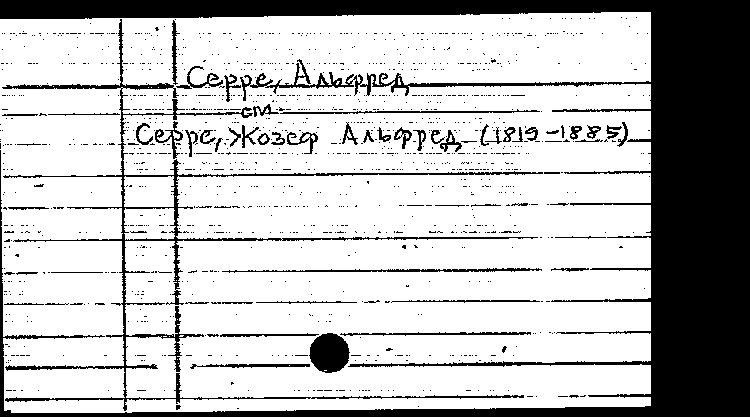 Серре, Альфред
см.
Серре, Жозеф Альфред, (1819-1885)